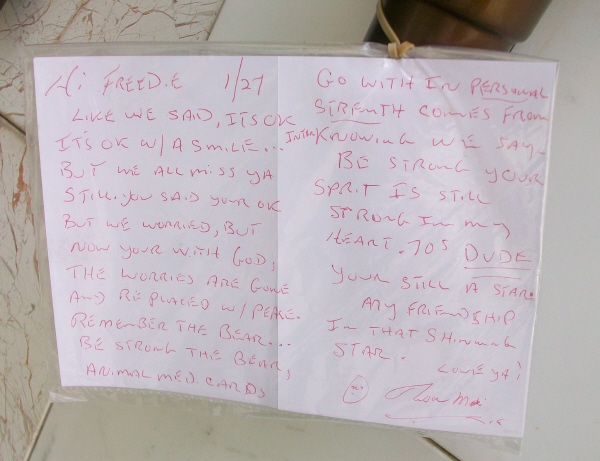 Hi FREEDIE 1/27
LIKE WE SAID, ITS OK
ITS OK W/ A SMILE...
BUT WE ALL MISS YA
STILL. YOU SAID YOUR OK
BUT WE WORRIED, BUT
NOW YOUR WITH GOD,
THE WORRIES ARE GONE
AND REPLACED W/ PEACE.
REMEMBER THE BEAR...
BE STRONG THE BEAR,
ANIMAL MED. CARDS
GO WITH IN PERSONAL
STRENTH COMES FROM
KNOWING WE SAY-
BE STRONG YOUR
SPRIT IS STILL
STRONG IN MY
HEART. 70s DUDE
YOUR STILL A STAR.
MY FRIENDSHIP
IN THAT SHINING
STAR.
LOVE YA!